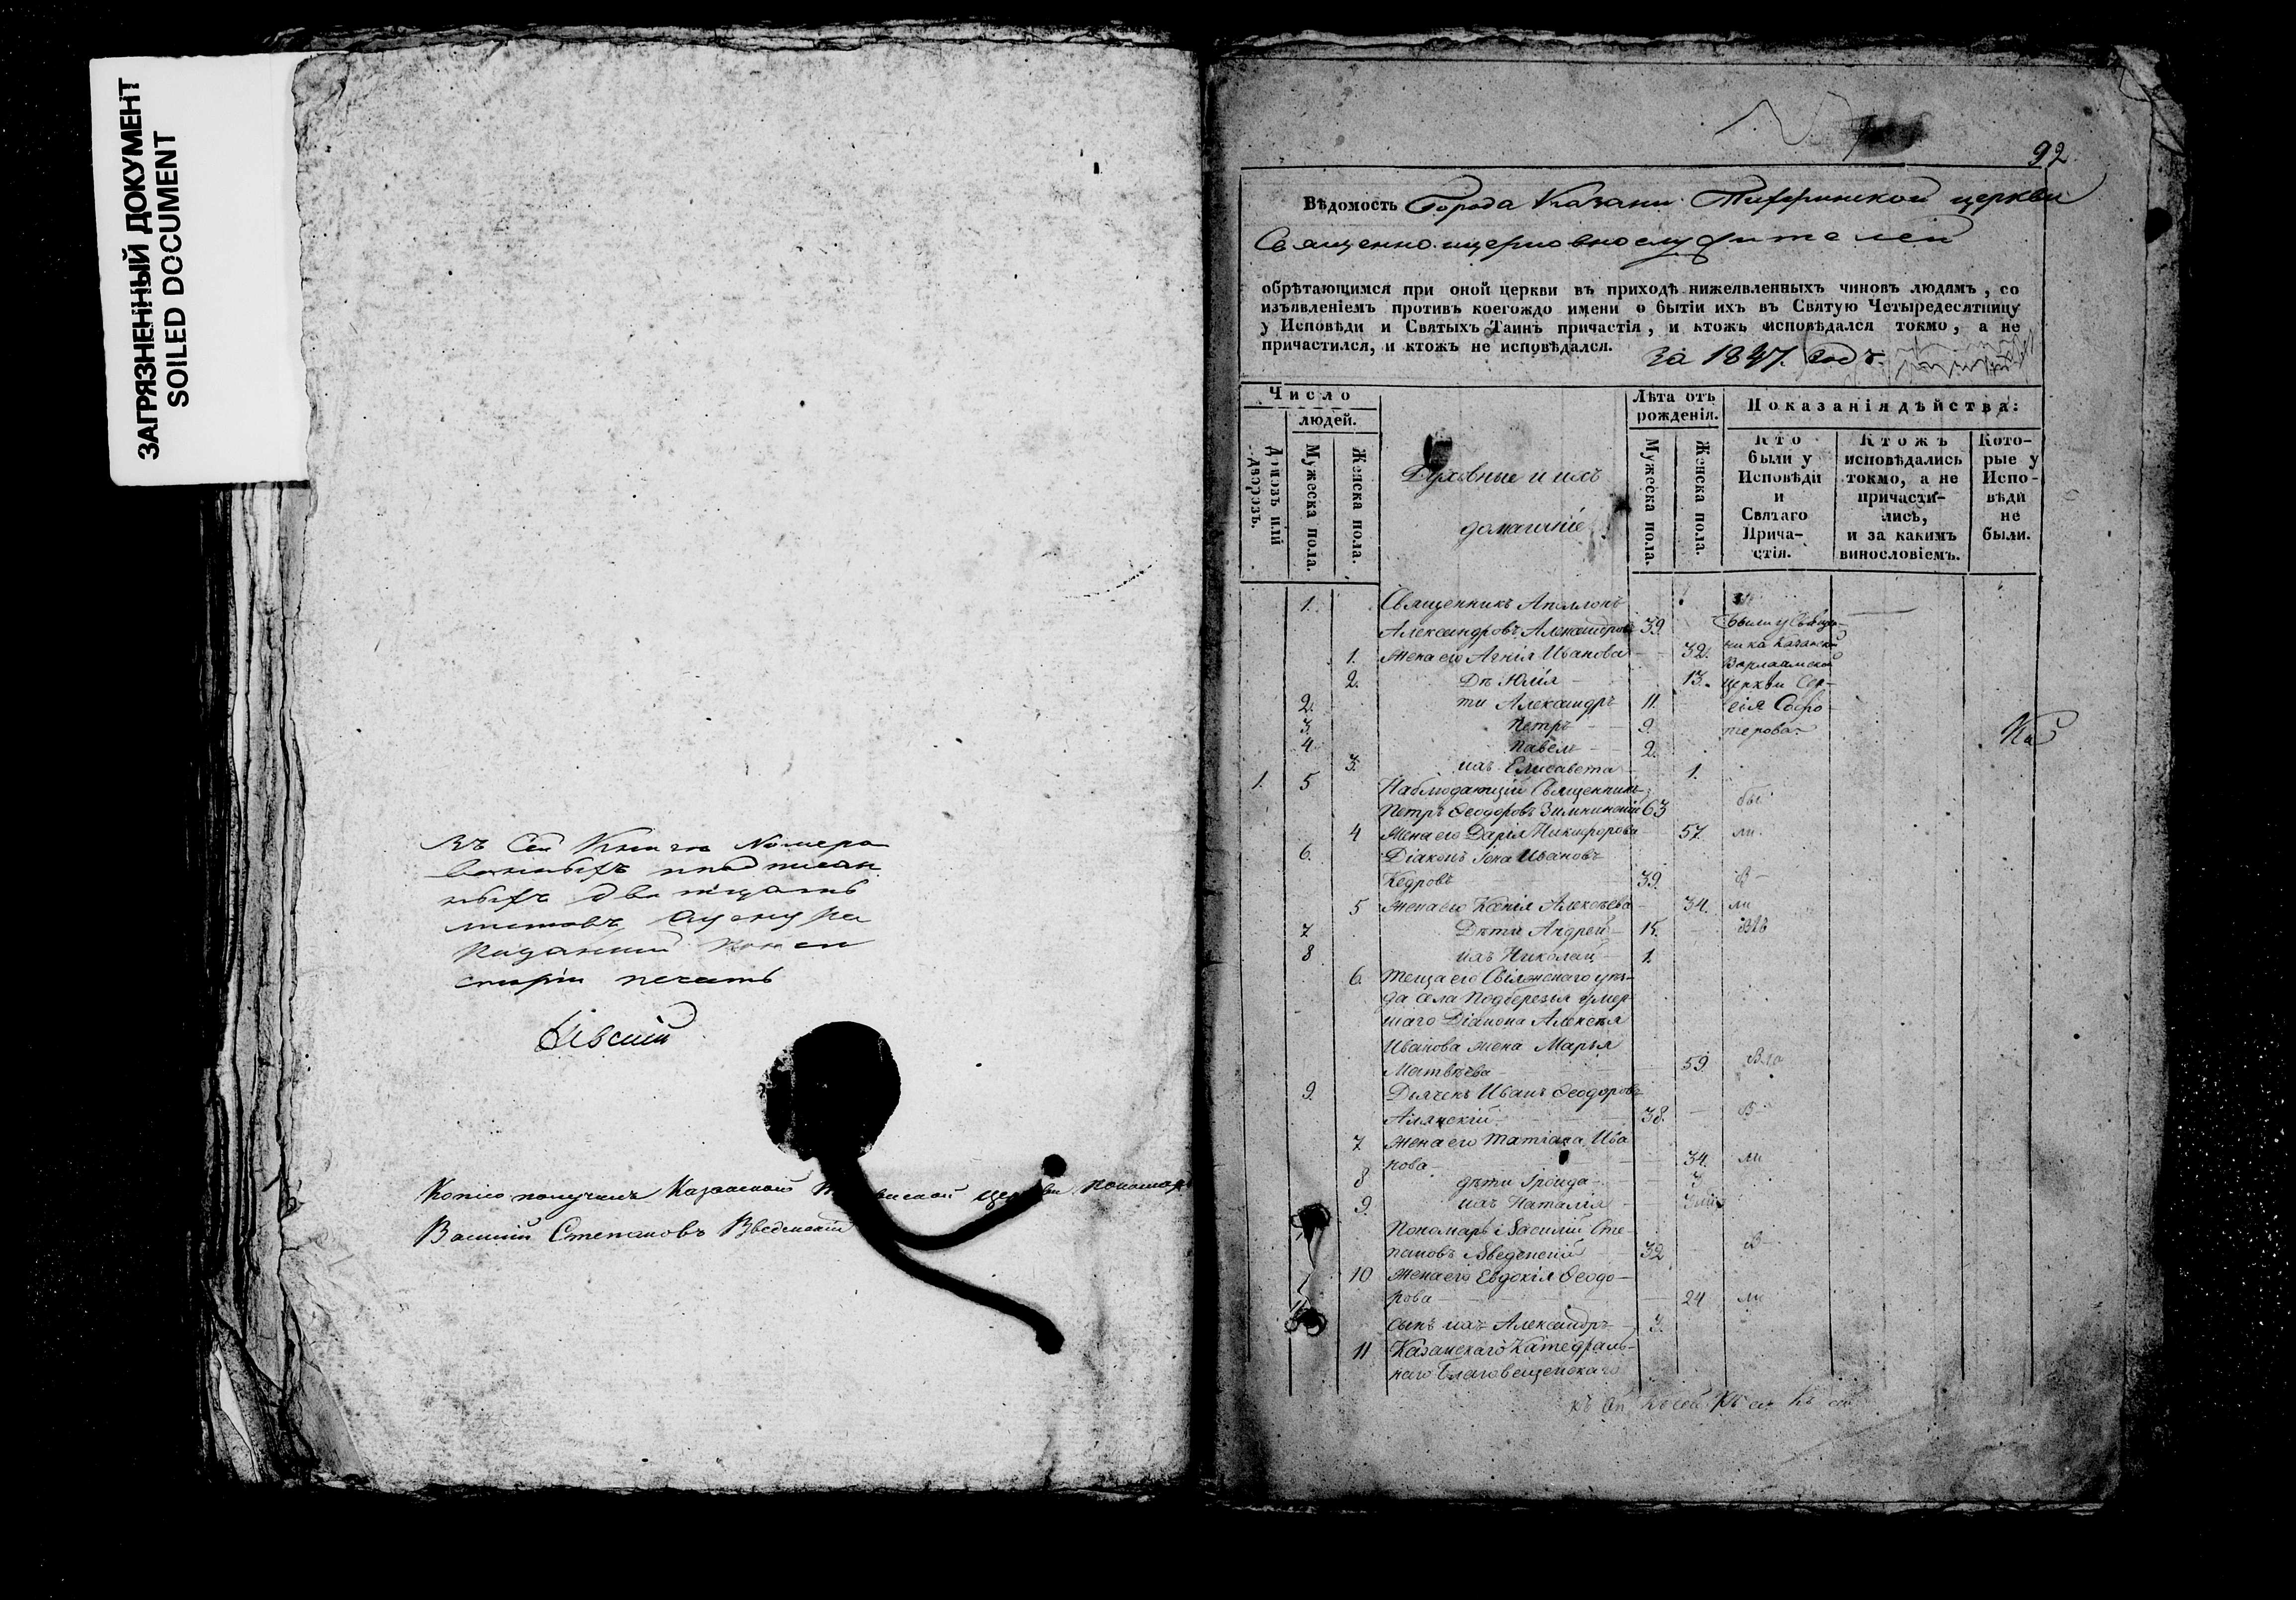 ЗАГРЯЗНЕННЫЙ ДОКУМЕНТ
SOILED DOCUMENT
Въ Сей Книге Номеро
ванныхъ
ныхъ
листовъ
Казанской Конси
сторіи печать
Копію получилъ Казанской церкви пономарь
Василій Степановъ Введенскій
92
Вѣдомость Города Казани Тихвинской церкви
Священно и церковнослужителей
обрѣтающимся при оной церкви въ приходѣ нижеявленныхъ чиновъ людямъ, со
изъявленіемъ противъ коегождо имени о бытіи ихъ въ Святую Четыредесятницу
у Исповѣди и Святыхъ Таинъ причастія, и ктожъ исповѣдался токмо, а не
причастился, и ктожъ не исповѣдался. За 1847. годъ.
Число
людей.
Домовъ или дворовъ.
Мужеска пола.
Женска пола.
Духовные и ихъ
домашніе
Лѣта отъ
рожденія.
Мужеска пола.
Женска пола.
Показанія дѣйства:
Кто
были у
Исповѣди
и
Святаго
Прича-
стія.
Ктожъ
исповѣдались
токмо, а не
причасти-
лись,
и за какимъ
винословіемъ.
Кото-
рые у
Испо-
вѣди
не
были.
1. Священникъ Аполлонъ
Александровъ Александровъ 39. Были у Свяще-
1. Жена его Агнія Иванова 32. ника Казанской
Варлаамской
2. Дѣ Юлія 13. церкви Сер-
2. ти Александръ 11. гія
3. Петръ 9.
4 Павелъ 2.
3. ихъ Елисавета 1.
1. 5 Наблюдающій Священникъ
Петръ Ѳеодоровъ Зимнинскій 63 бы
4 Жена его Дарія Никифорова 57. ли.
6. Діаконъ Іона Ивановъ
Кедровъ 39. В
5 Жена его Ксенія Алексѣева 34. ли
7 Дѣти Андрей 15.
8 ихъ Николай 1.
6. Теща его Свіяжскаго уѣз-
да села Подберезья умер
шаго Діакона Алексѣя
Иванова жена Марья
Матвѣева 59.
9. Дьячекъ Иванъ Ѳеодоровъ
38. В
7. Жена его Татіана Ива
нова 34. ли
8 дѣти Іраида
9. ихъ Наталія
Пономарь Василій Сте
пановъ Введенскій 32 В
10 Жена его Евдокія Ѳеодо-
рова 24 ли
Сынъ ихъ Александръ
11 Казанскаго Катедраль-
наго Благовещенскаго